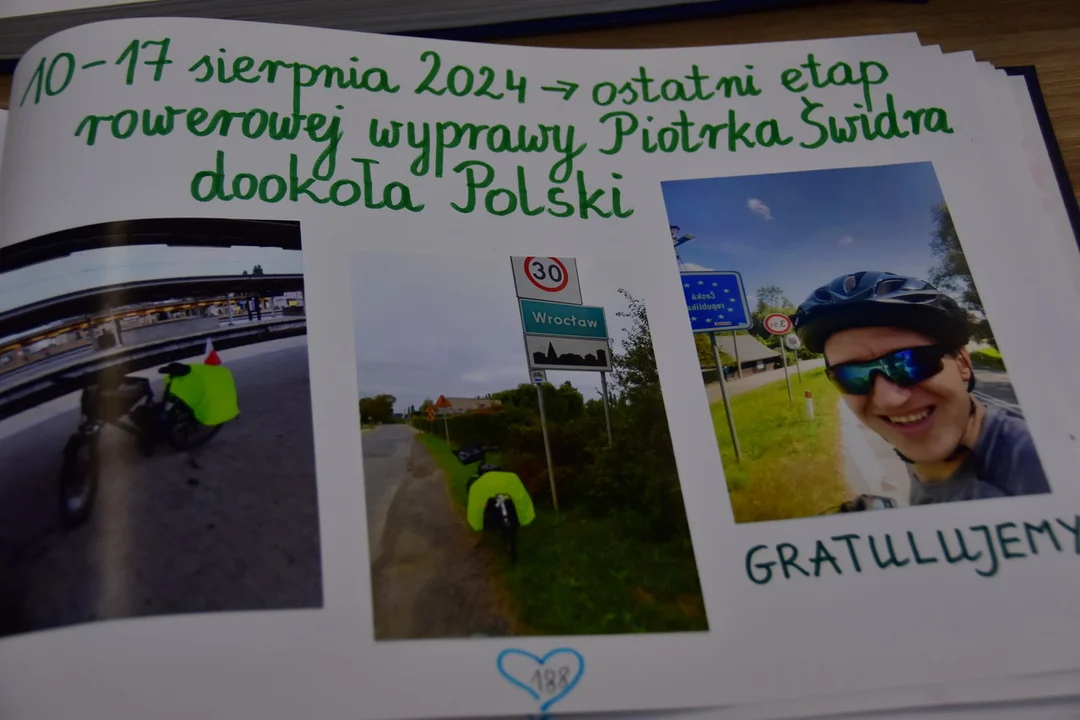 10-17 sierpnia 2024 → ostatni etap
rowerowej wyprawy Piotrka Świdra
dookoła Polski
30
Wrocław
Česká
republika
GRATULUJEMY
188